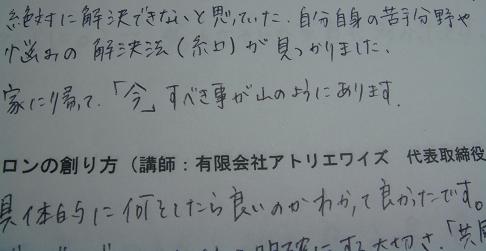 絶対に解決できないと思っていた、自分自身の苦手分野や
悩みの解決法(糸口)が見つかりました、
家に帰って、「今」すべき事が山のようにあります。
ロンの創り方(講師:有限会社アトリエワイズ 代表取締役
具体的に何をしたら良いのかわかって良かったです。
にする大切さ、「共